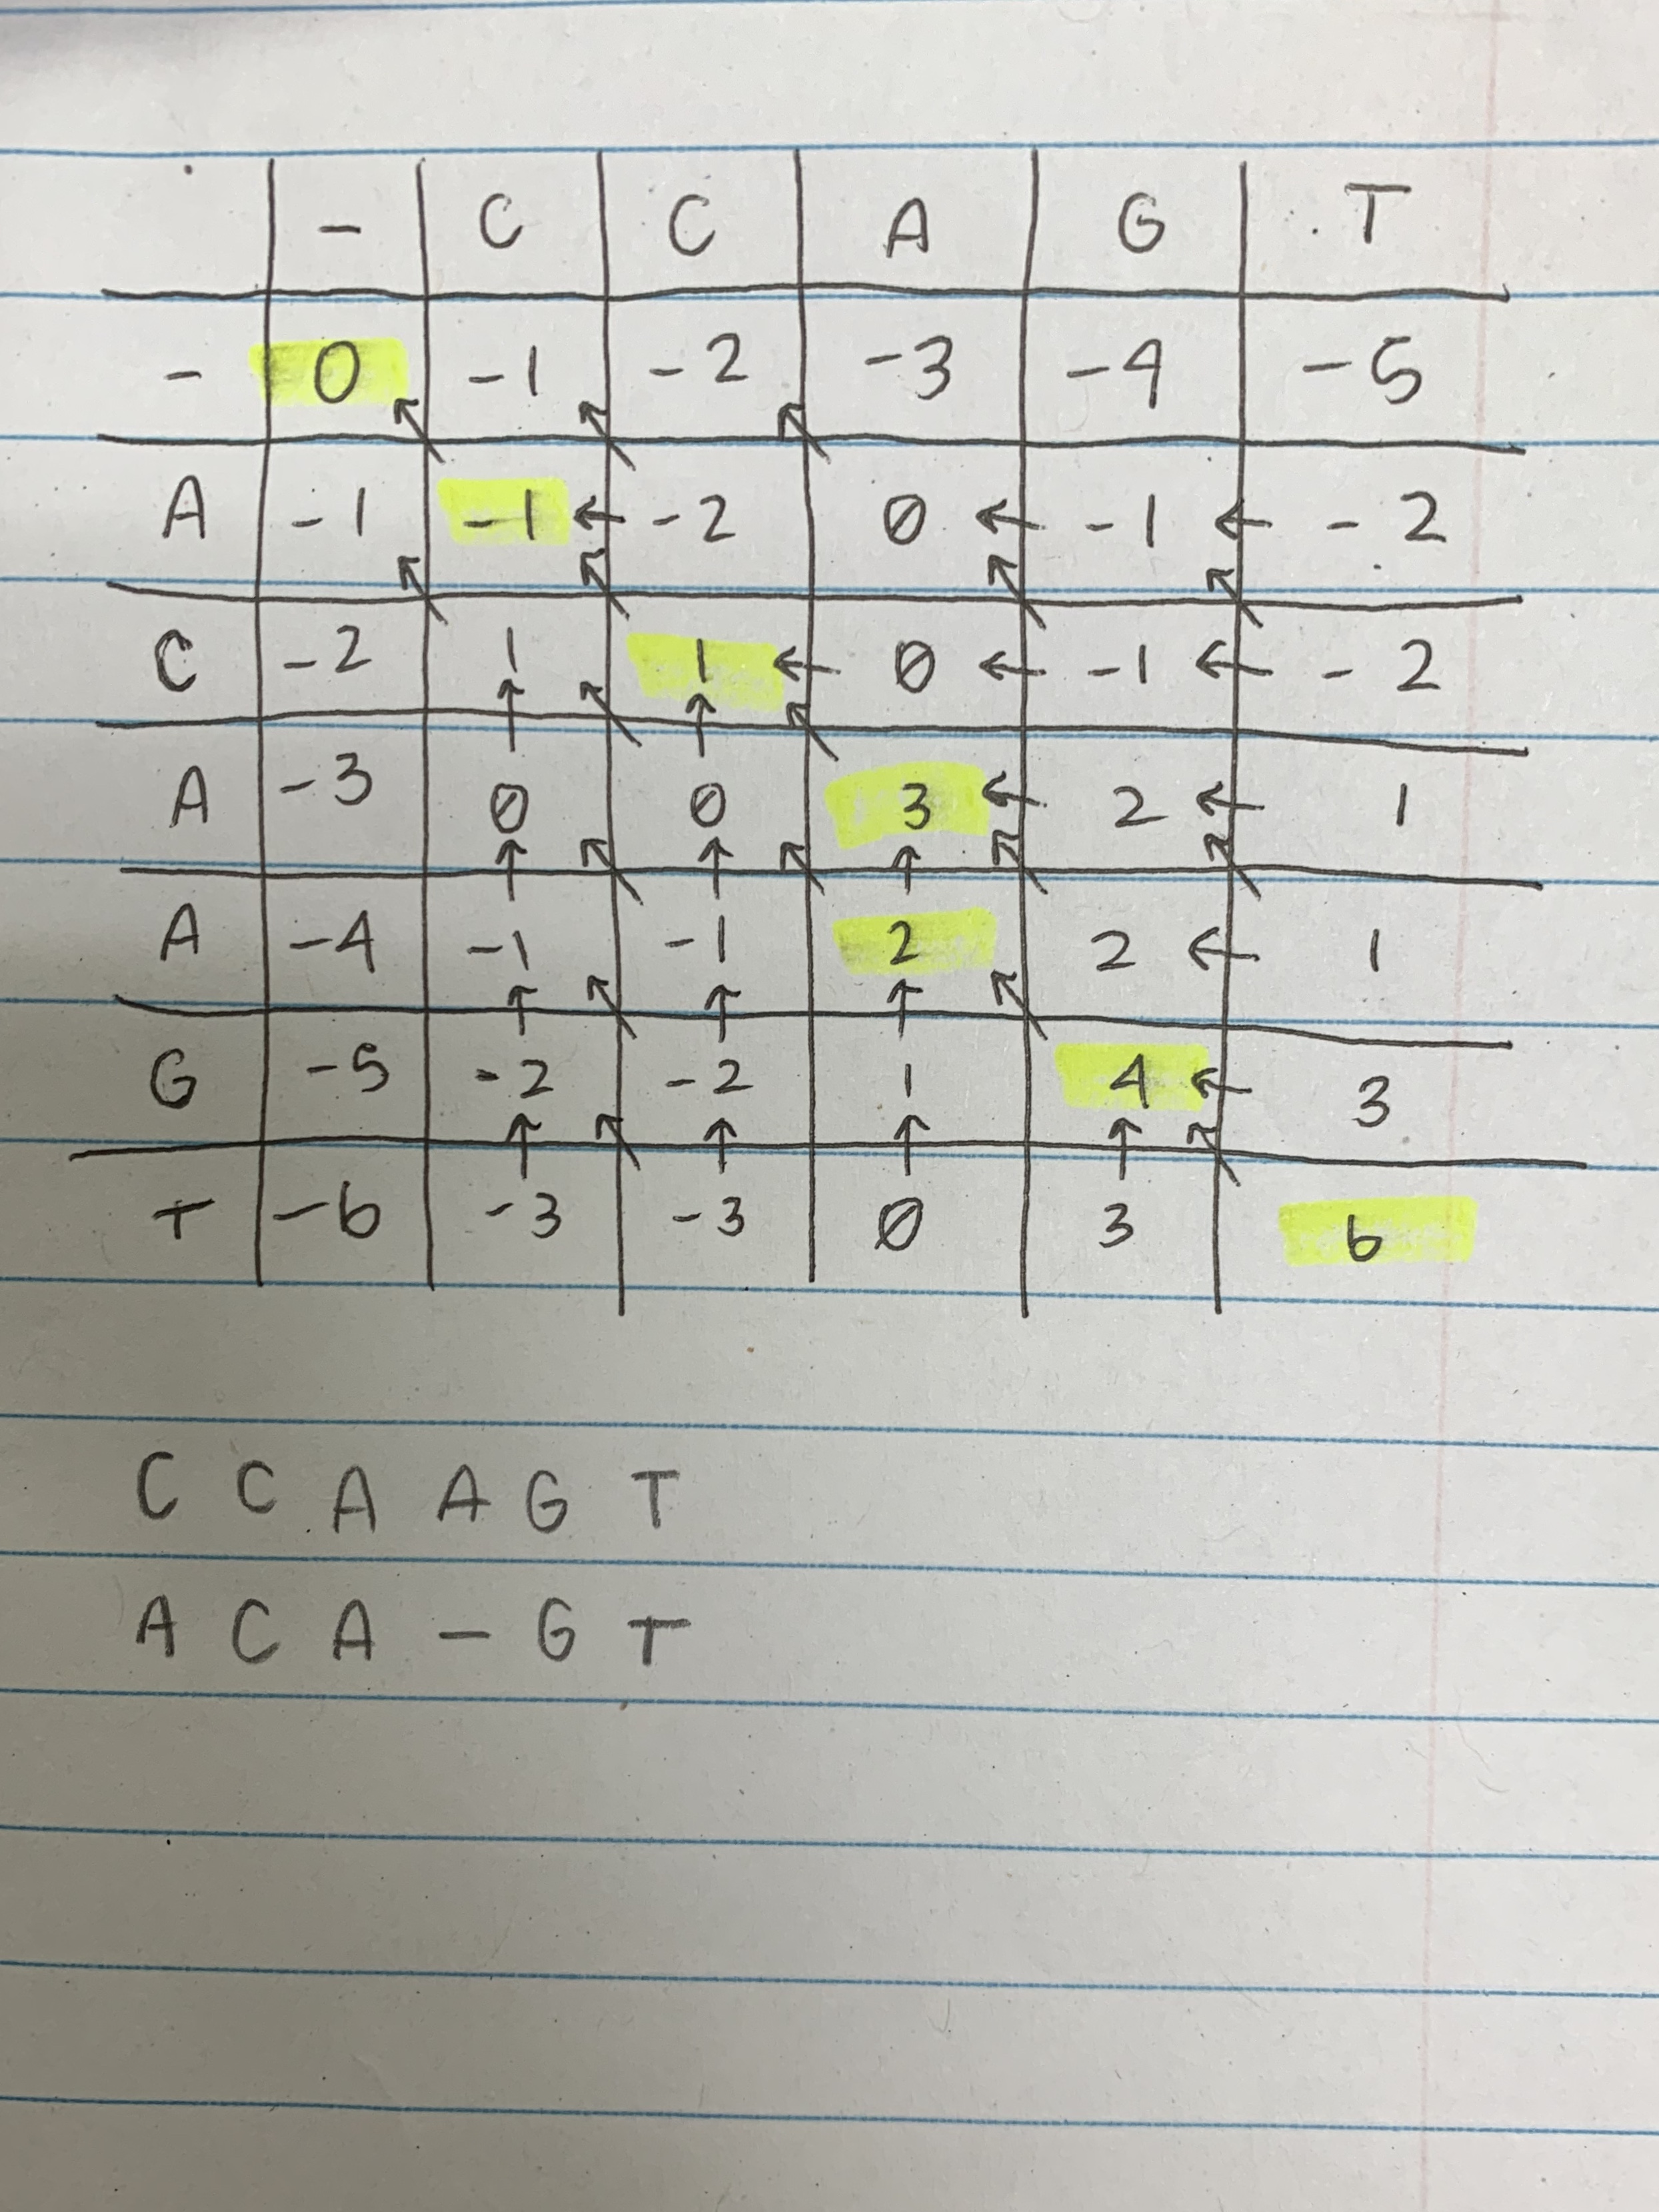 - C C A G T
- 0 -1 -2 -3 -4 -5
A -1 -1 ← -2 0 ← -1 ← -2
C -2 1 1 ← 0 ← -1 ← -2
A -3 0 0 3 ← 2 ← 1
A -4 -1 -1 2 2 ← 1
G -5 -2 -2 1 4 ← 3
T -6 -3 -3 0 3 6
C C A A G T
A C A - G T